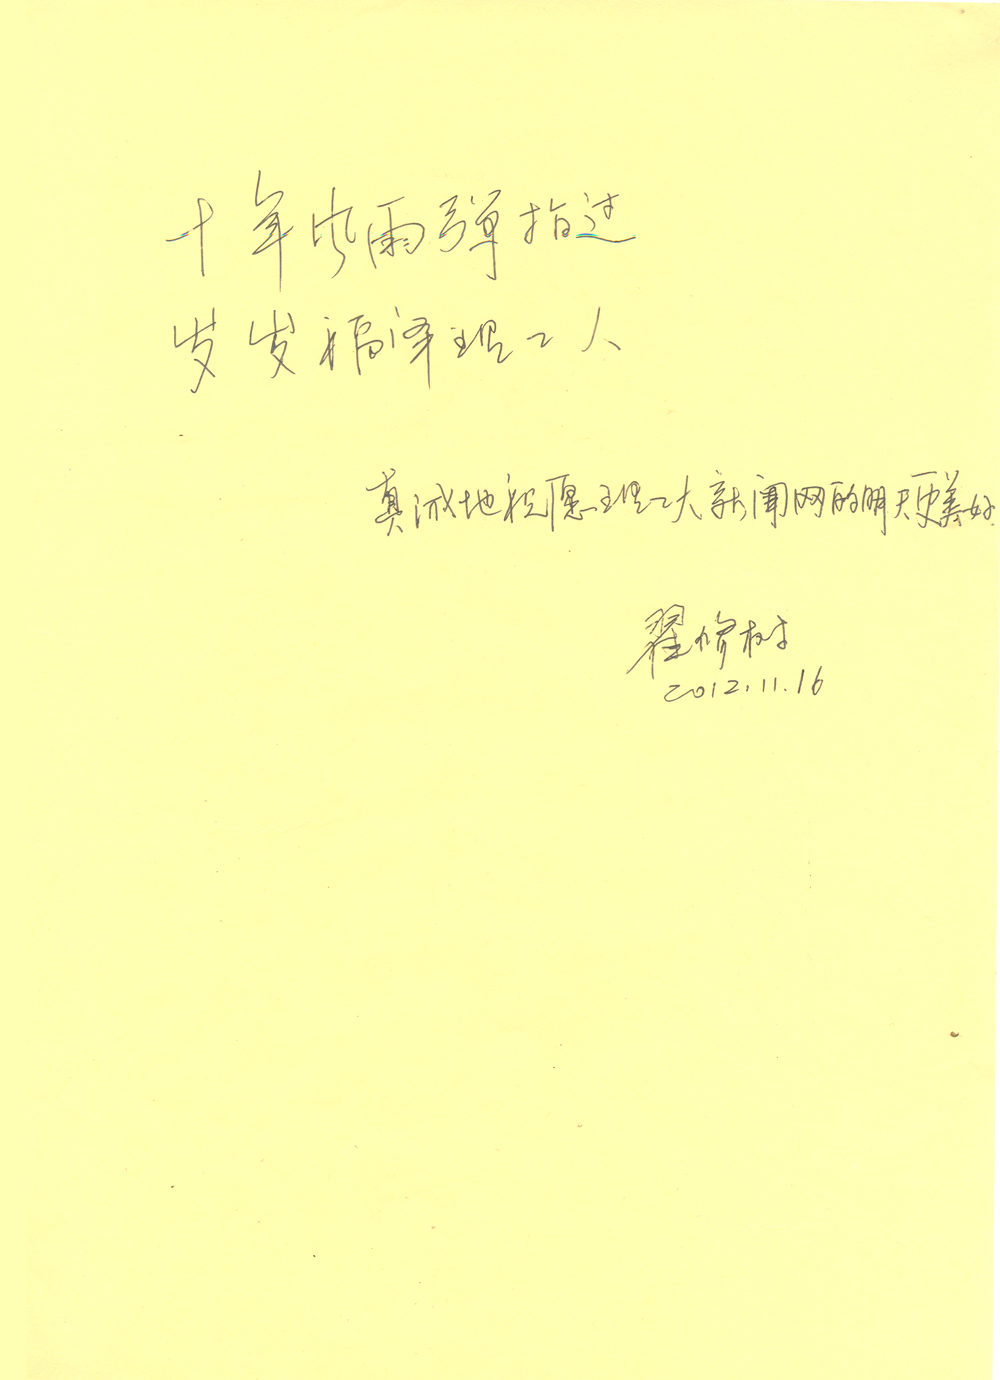 十年风雨弹指过
岁岁福泽理工人
真诚地祝愿理工大新闻网的明天更美好
翟修树
2012.11.16